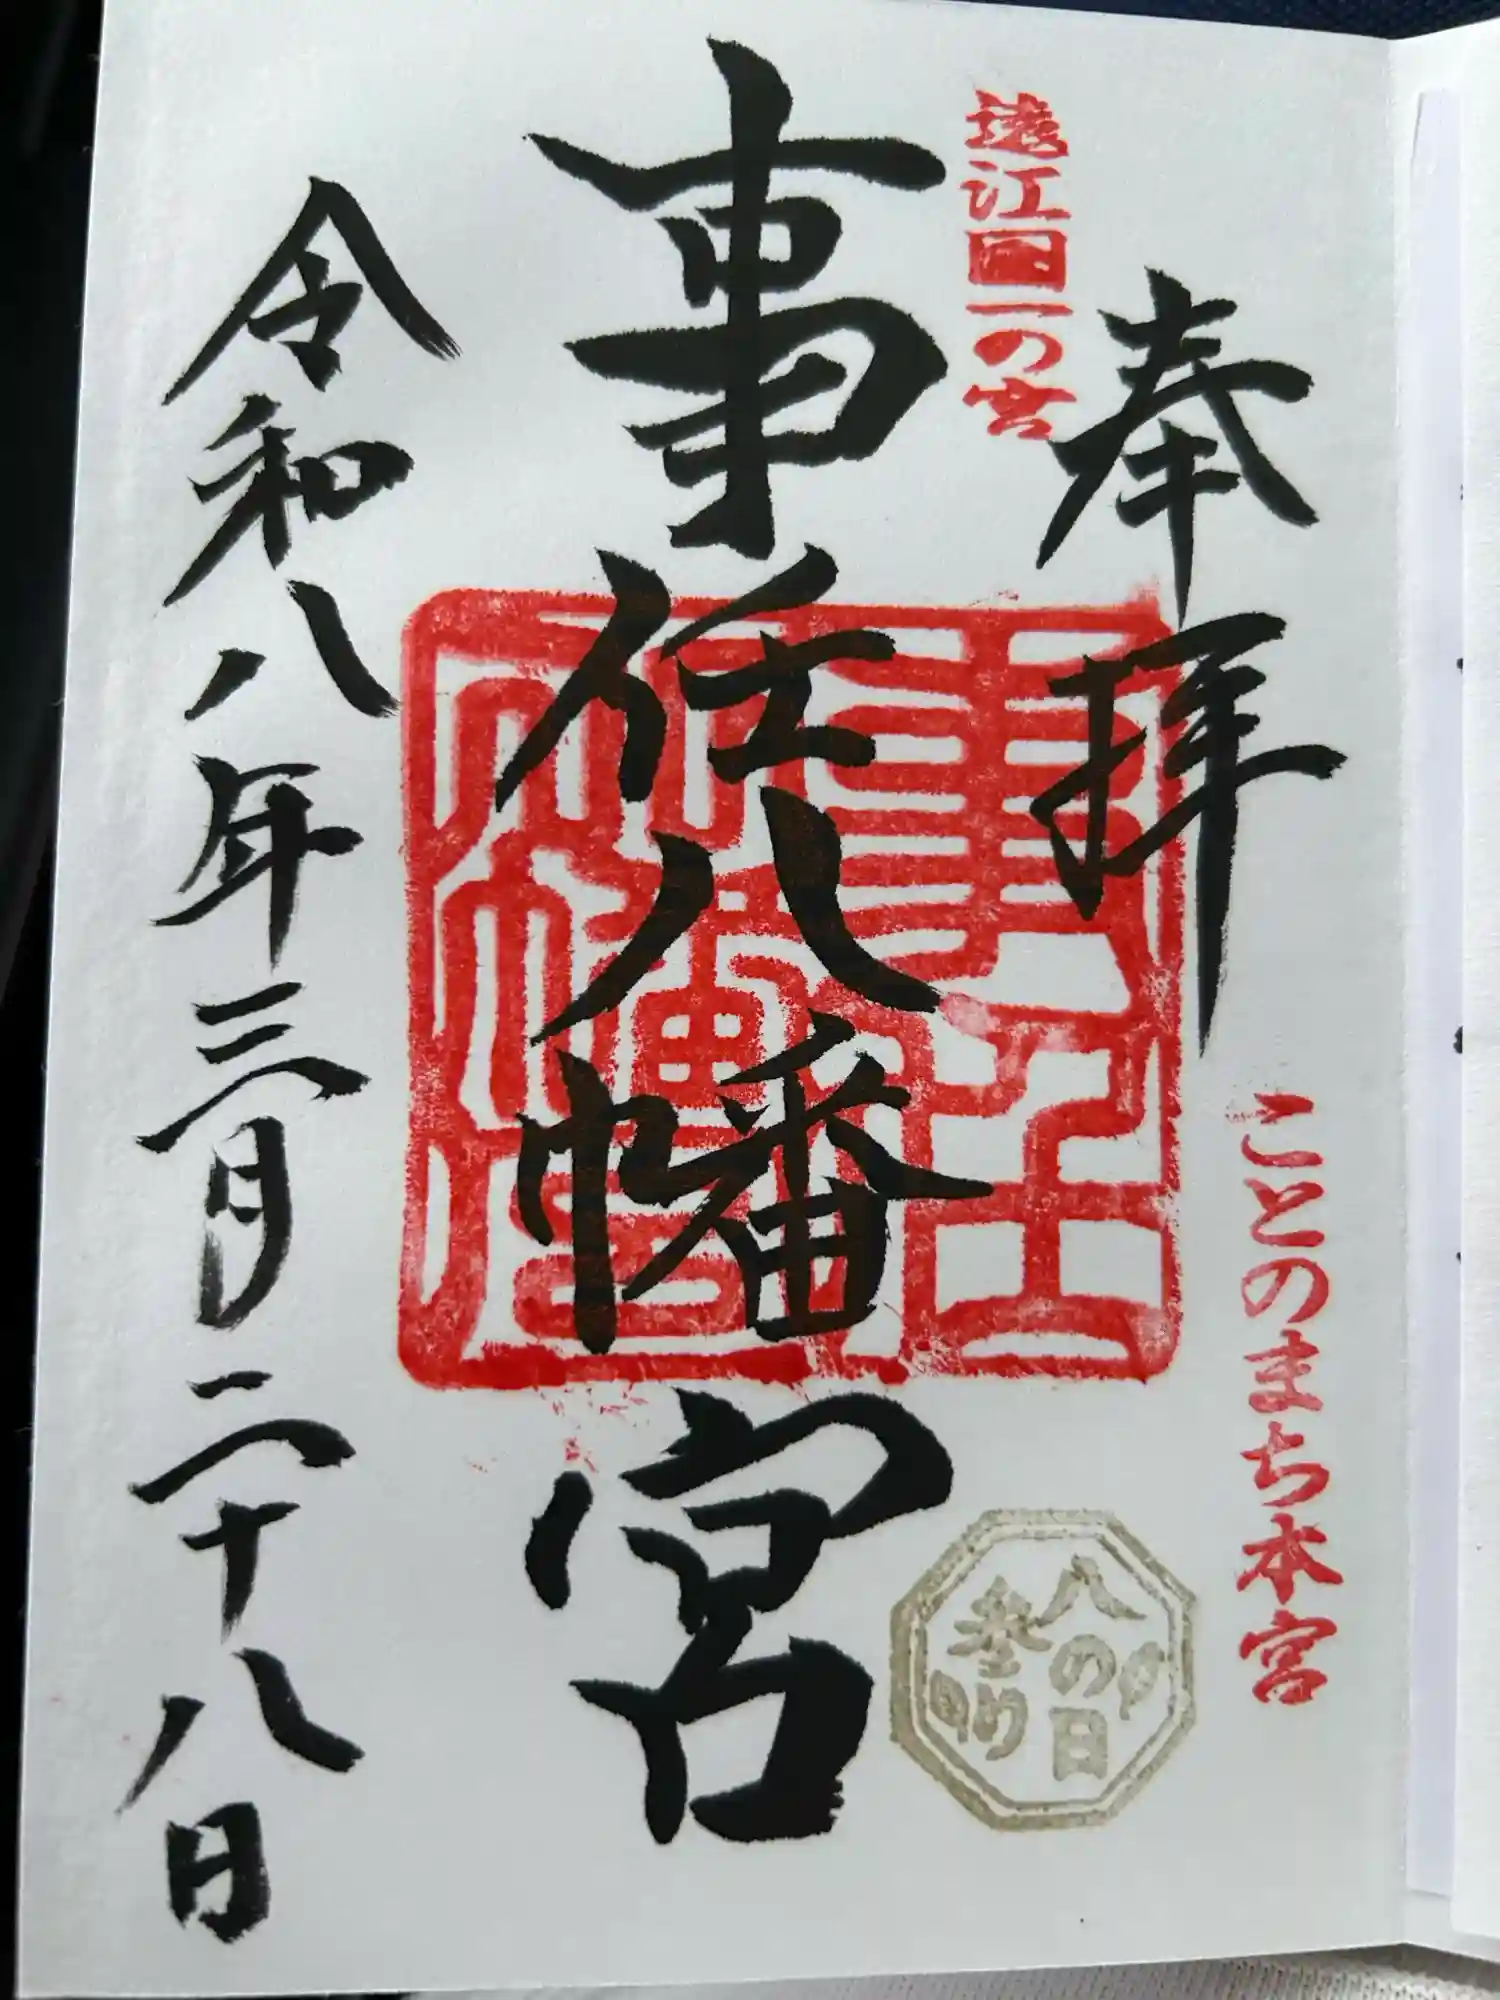 奉拝
ことのまち本宮
遠江国一の宮
事任八幡宮
八の日
参り
令和八年三月二十八日